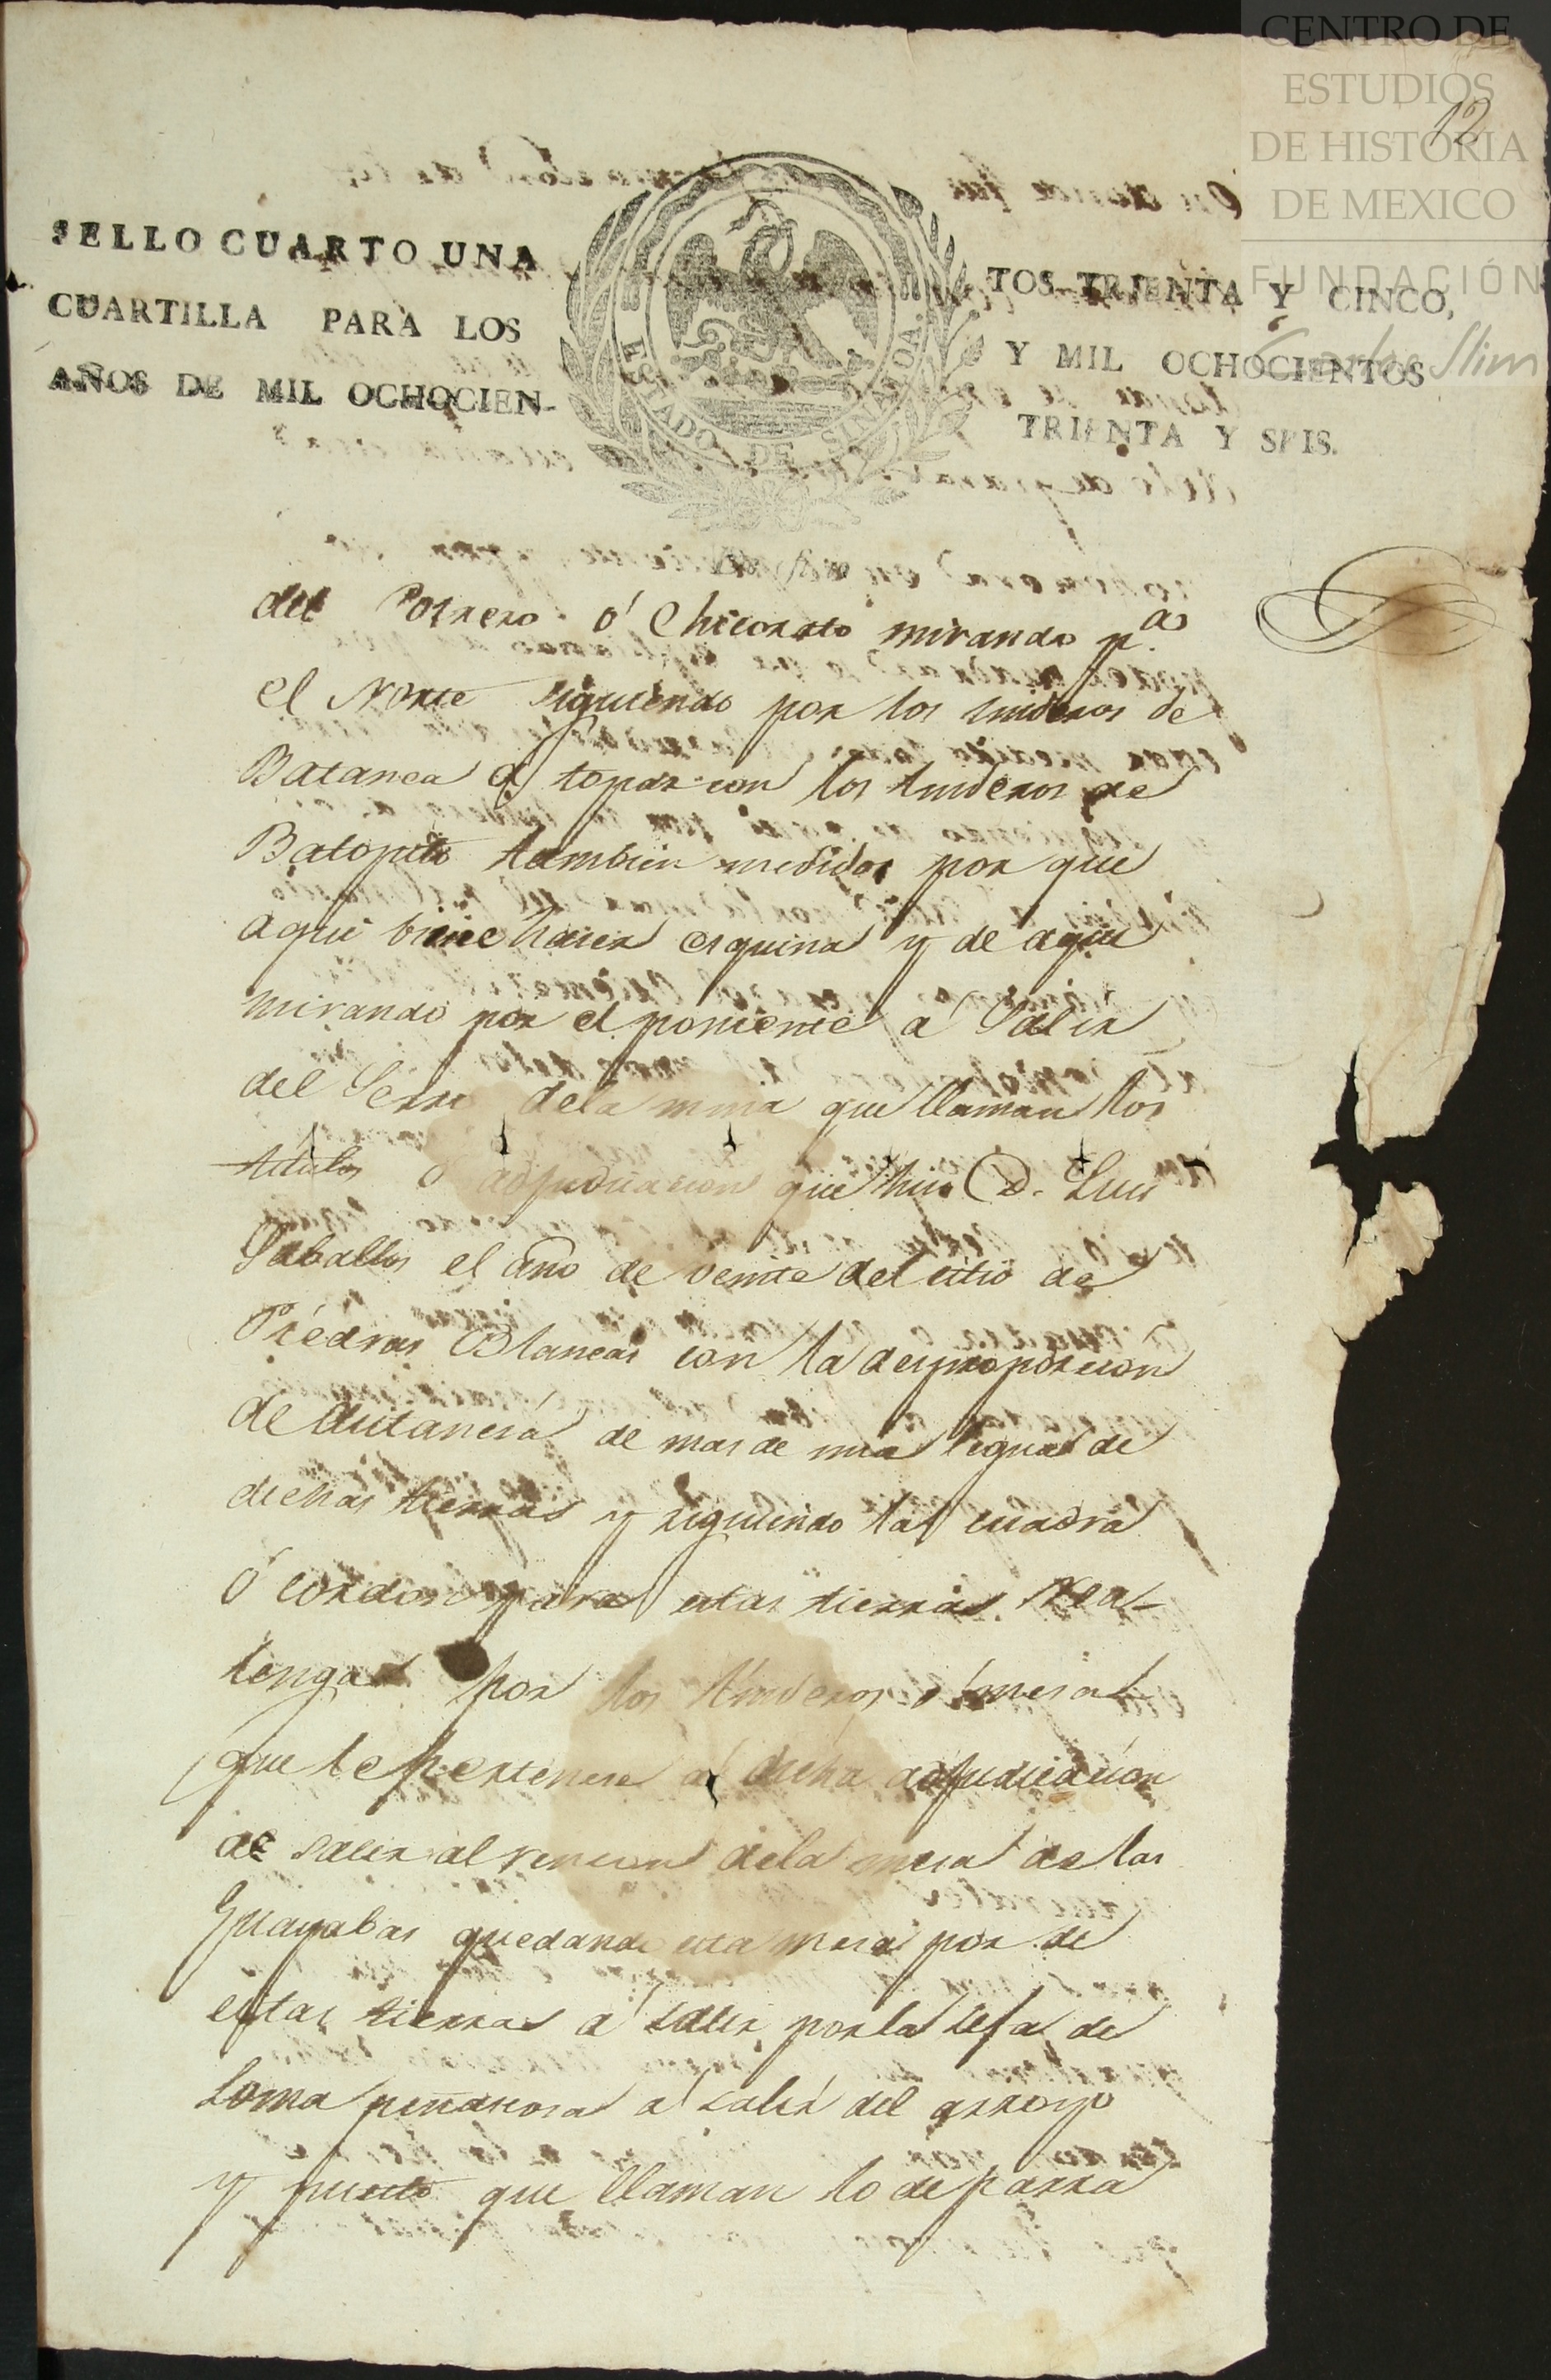 CENTRO DE
ESTUDIOS
DE HISTORIA
DE MEXICO
FUNDACIÓN
Carlos Slim
12
SELLO CUARTO UNA
CUARTILLA PARA LOS
AÑOS DE MIL OCHOCIEN-
ESTADO DE SINALOA.
TOS TRIENTA Y CINCO,
Y MIL OCHOCIENTOS
TRIENTA Y SEIS.
del Potrero ó Chicorato mirando p.a
el Norte siguiendo por los linderos de
Batanea á topar con los linderos de
Batopito tambien medidos por que
aqui biene haser esquina y de aqui
mirando por el poniente á Salir
del Serro dela mina que llaman los
titulos ó adjudicacion que hiso D. Luis
Saballos el año de veinte del sitio de
Piedras Blancas con la desproporcion
de distancia de mas de una legua de
dichas tierras y siguiendo la cuadra
ó cordon para estas tierras Rea-
lengas por los linderos ó
que le pertenese á dicha adjudicacion
de salir al rincon dela mesa de las
Guayabas quedando esta mesa por de
estas tierras á salir por la seja de
Loma peñascosa á salir del arroyo
y punto que llaman lo de parra